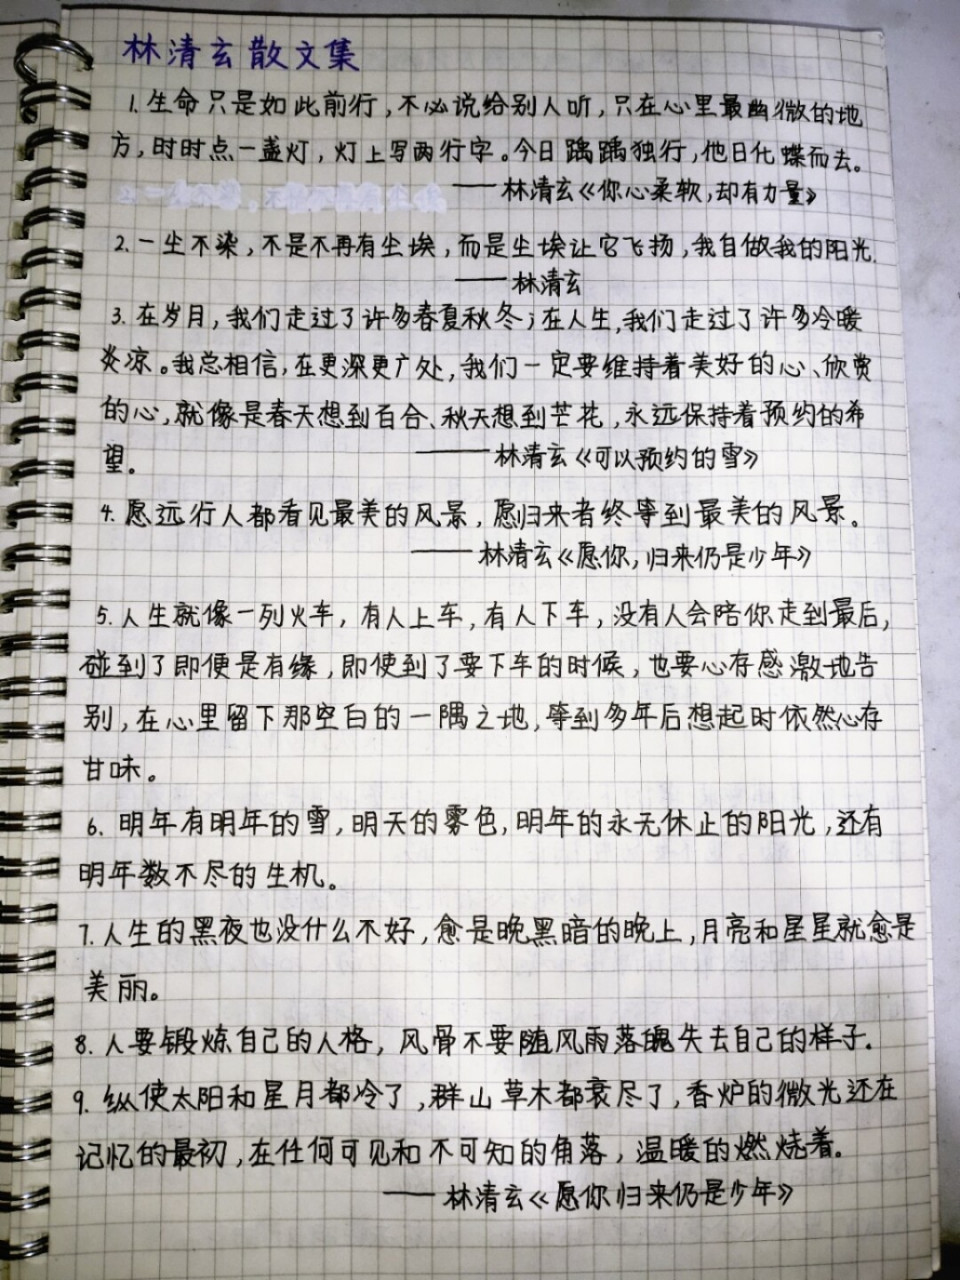 林清玄散文集
1.生命只是如此前行,不必说给别人听,只在心里最幽微的地
方,时时点一盏灯,灯上写两行字。今日踽踽独行,他日化蝶而去。
——林清玄《你心柔软,却有力量》
2.一尘不染,不是不再有尘埃,而是尘埃让它飞扬,我自做我的阳光.
——林清玄
3.在岁月,我们走过了许多春夏秋冬;在人生,我们走过了许多冷暖
炎凉。我总相信,在更深更广处,我们一定要维持着美好的心、欣赏
的心,就像是春天想到百合、秋天想到芒花,永远保持着预约的希
望。 ——林清玄《可以预约的雪》
4.愿远行人都看见最美的风景,愿归来者终等到最美的风景。
——林清玄《愿你,归来仍是少年》
5.人生就像一列火车,有人上车,有人下车,没有人会陪你走到最后,
碰到了即便是有缘,即使到了要下车的时候,也要心存感激地告
别,在心里留下那空白的一隅之地,等到多年后想起时依然心存
甘味。
6.明年有明年的雪,明天的雾色,明年的永无休止的阳光,还有
明年数不尽的生机。
7.人生的黑夜也没什么不好,愈是晚黑暗的晚上,月亮和星星就愈是
美丽。
8.人要锻炼自己的人格,风骨不要随风雨落魄失去自己的样子.
9.纵使太阳和星月都冷了,群山草木都衰尽了,香炉的微光还在
记忆的最初,在任何可见和不可知的角落,温暖的燃烧着.
——林清玄《愿你归来仍是少年》